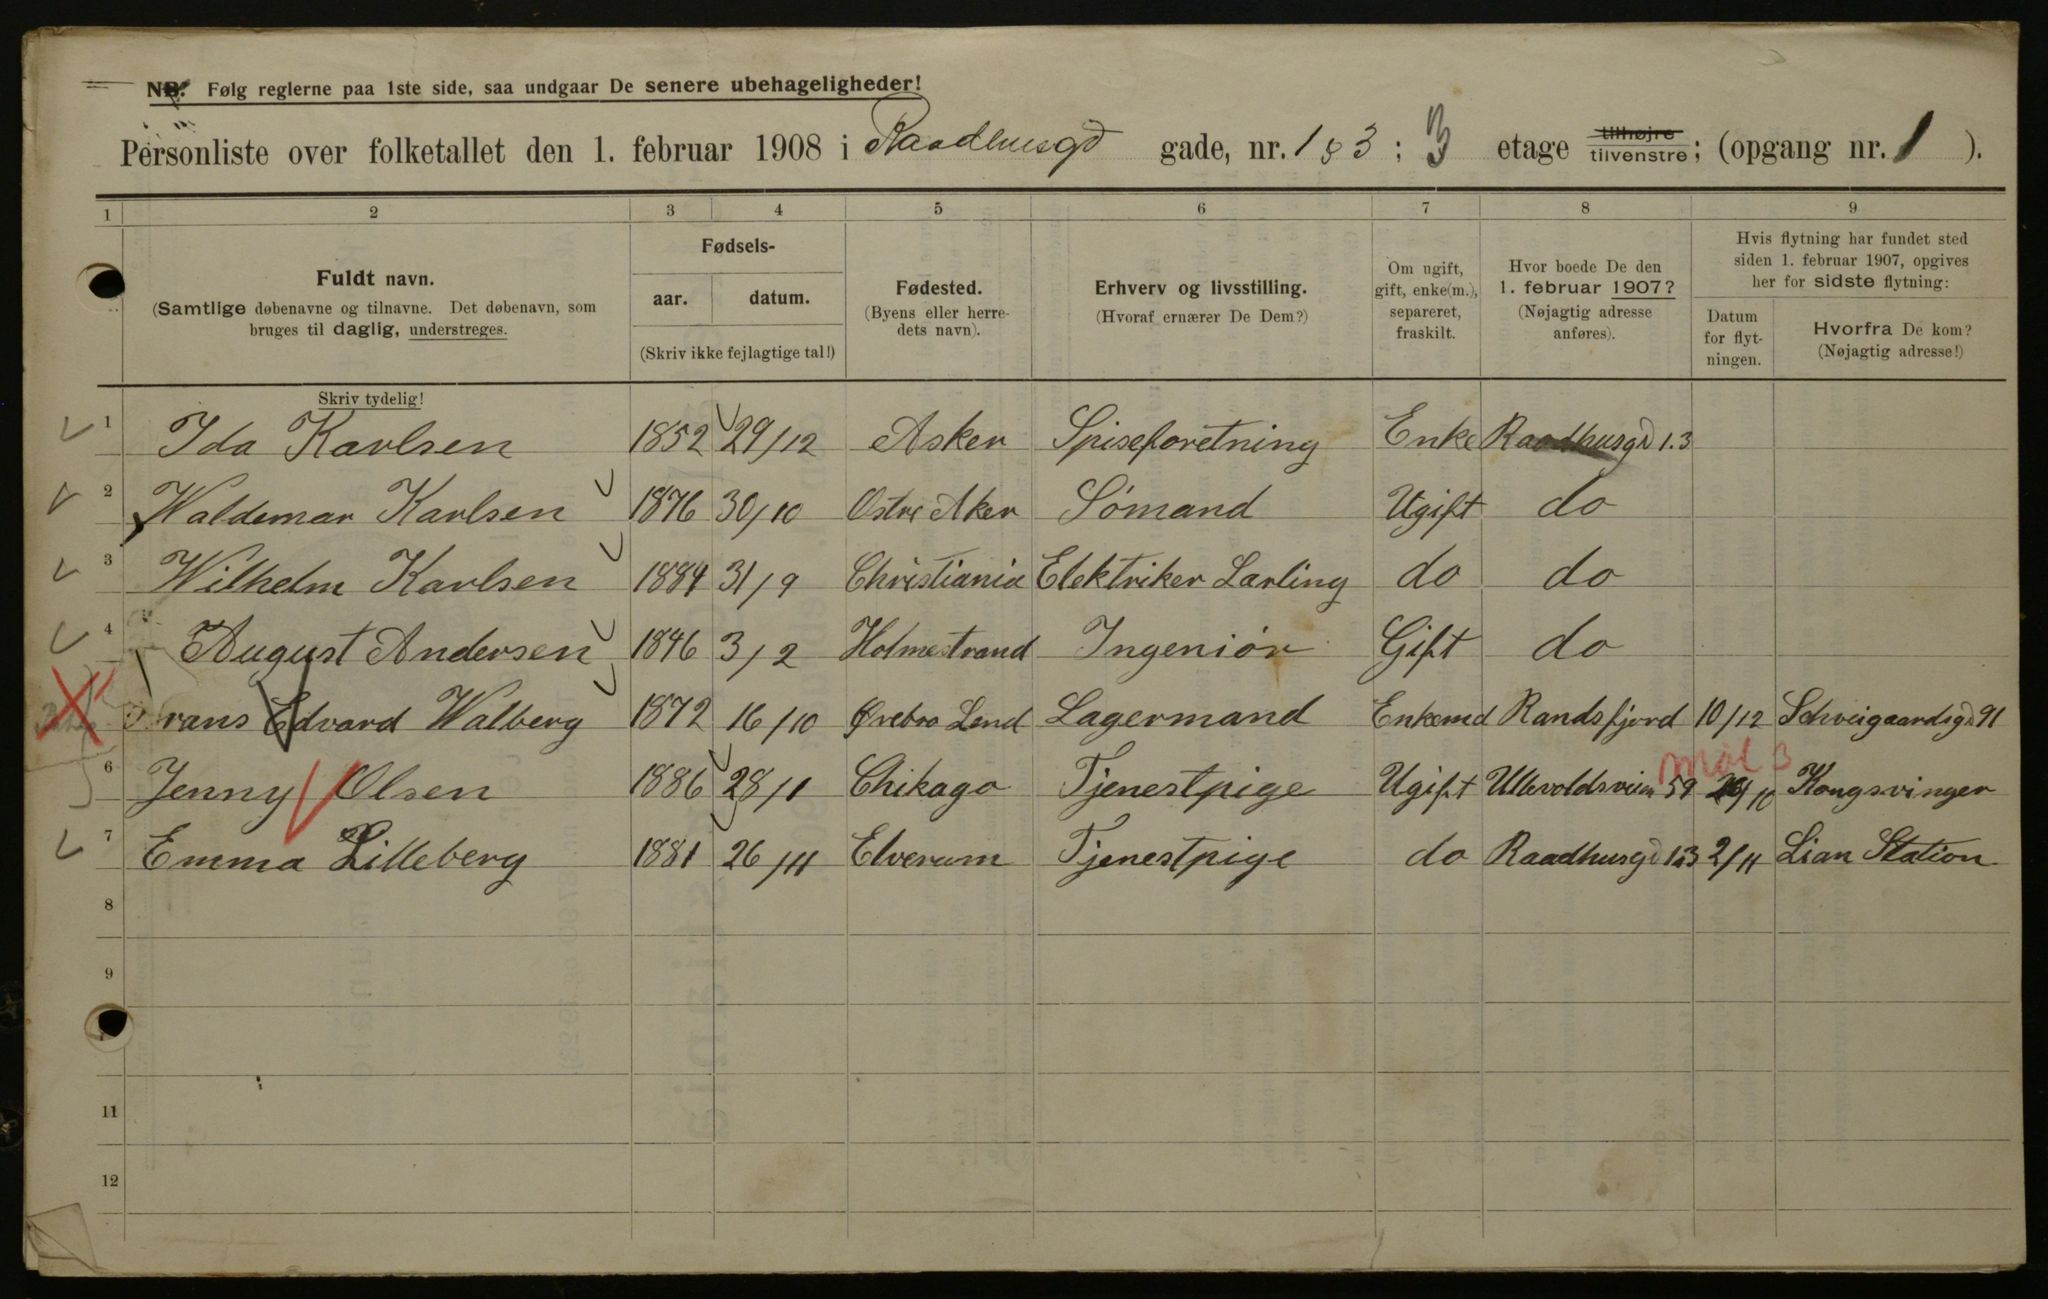 NB. Følg reglerne paa 1ste side, saa undgaar De senere ubehageligheder!
Personliste over folketallet den 1. februar 1908 i Raadhusgd gade, nr. 1 & 3 ; 3 etage tilhøjre tilvenstre ; (opgang nr. 1 ).
1 2 3 4 5 6 7 8 9
Fuldt navn.
(Samtlige døbenavne og tilnavne. Det døbenavn, som
bruges til daglig, understreges.
Skriv tydelig!
Fødsels-
aar. datum.
(Skriv ikke fejlagtige tal!)
Fødested.
(Byens eller herre-
dets navn).
Erhverv og livsstilling.
(Hvoraf ernærer De Dem?)
Om ugift,
gift, enke(m.),
separeret,
fraskilt.
Hvor boede De den
1. februar 1907?
(Nøjagtig adresse
anføres).
Hvis flytning har fundet sted
siden 1. februar 1907, opgives
her for sidste flytning:
Datum
for flyt-
ningen.
Hvorfra De kom?
(Nøjagtig adresse!)
1 Ida Karlsen 1852 29/12 Asker Spiseforetning Enke Raadhusgd 1.3
2 Waldemar Karlsen 1876 30/10 Østre Aker Sømand Ugift do
3 Wilhelm Karlsen 1884 31/9 Christiania Elektriker Lærling do do
4 August Andersen 1846 3/2 Holmestrand Ingeniør Gift do
Frans Edvard Walberg 1872 16/10 Ørebro Lend Lagermand Enkemd Randsfjord 10/12 Schveigaardsgd 91
6 Jenny Olsen 1886 28/1 Chikago Tjenestpige Ugift Ullevoldsveien 59 /10 Kongsvinger
7 Emma Lilleberg 1881 26/11 Elverum Tjenestpige do Raadhusgd 1&3 2/11 Lian Station
8
9
11
12